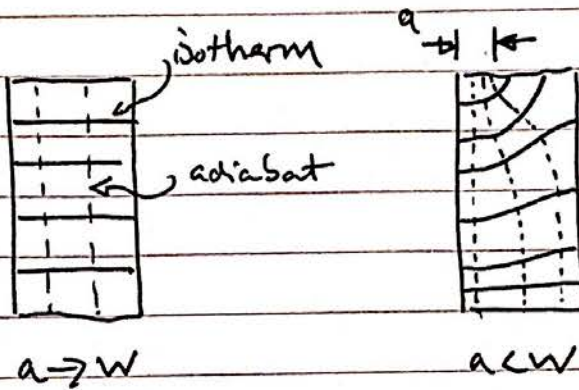 isotherm
a
adiabat
a → W
a < W